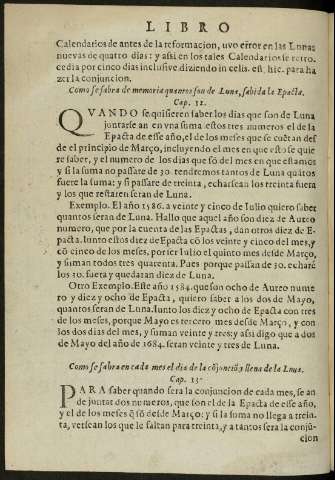 LIBRO
Calendarios de antes de la reformacion, uvo error en las Lunas
nuevas de quatro dias: y assi en los tales Calendarios se retro.
cedia por cinco dias inclusive diziendo in celis. est. hic. para ha
zer la conjuncion.
Como se sabra de memoria quantos son de Luna, sabida la Epacta.
Cap. 12.
QVANDO se quisieren saber los dias que son de Luna
juntarse an en vna suma estos tres numeros el de la
Epacta de esse año, el de los meses que se cuẽtan des
de el principio de Março, incluyendo el mes en que esto se quie
re saber, y el numero de los dias que sõ del mes en que estamos
y si la suma no passare de 30. tendremos tantos de Luna quãtos
fuere la suma: y si passare de treinta, echarsean los treinta fuera
y los que restaren seran de Luna.
Exemplo. El año 1586. a veinte y cinco de Iulio quiero saber
quantos seran de Luna. Hallo que aquel año son diez de Aureo
numero, que por la cuenta de las Epactas, dan otros diez de E-
pacta. Iunto estos diez de Epacta cõ los veinte y cinco del mes, y
cõ cinco de los meses, por ser Iulio el quinto mes desde Março,
y suman todos tres quarenta. Pues porque passan de 30. echaré
los 30. fuera y quedaran diez de Luna.
Otro Exemplo. Este año 1584. que son ocho de Aureo nume
ro y diez y ocho de Epacta, quiero saber a los dos de Mayo,
quantos seran de Luna. Iunto los diez y ocho de Epacta con tres
de los meses, porque Mayo es tercero mes desde Março, y con
los dos dias del mes, y suman veinte y tres: y assi digo que a dos
de Mayo del año de 1684. seran veinte y tres de Luna.
Como se sabra en cada mes el dia de la cõjonciõ y llena de la Luna.
Cap. 13.
PARA saber quando sera la conjuncion de cada mes, se an
de juntar dos numeros, que son el de la Epacta de esse año,
y el de los meses q̃ sõ desde Março: y si la suma no llega a trein-
ta, versean los que le faltan para treinta, y a tantos sera la conjũ-
cion